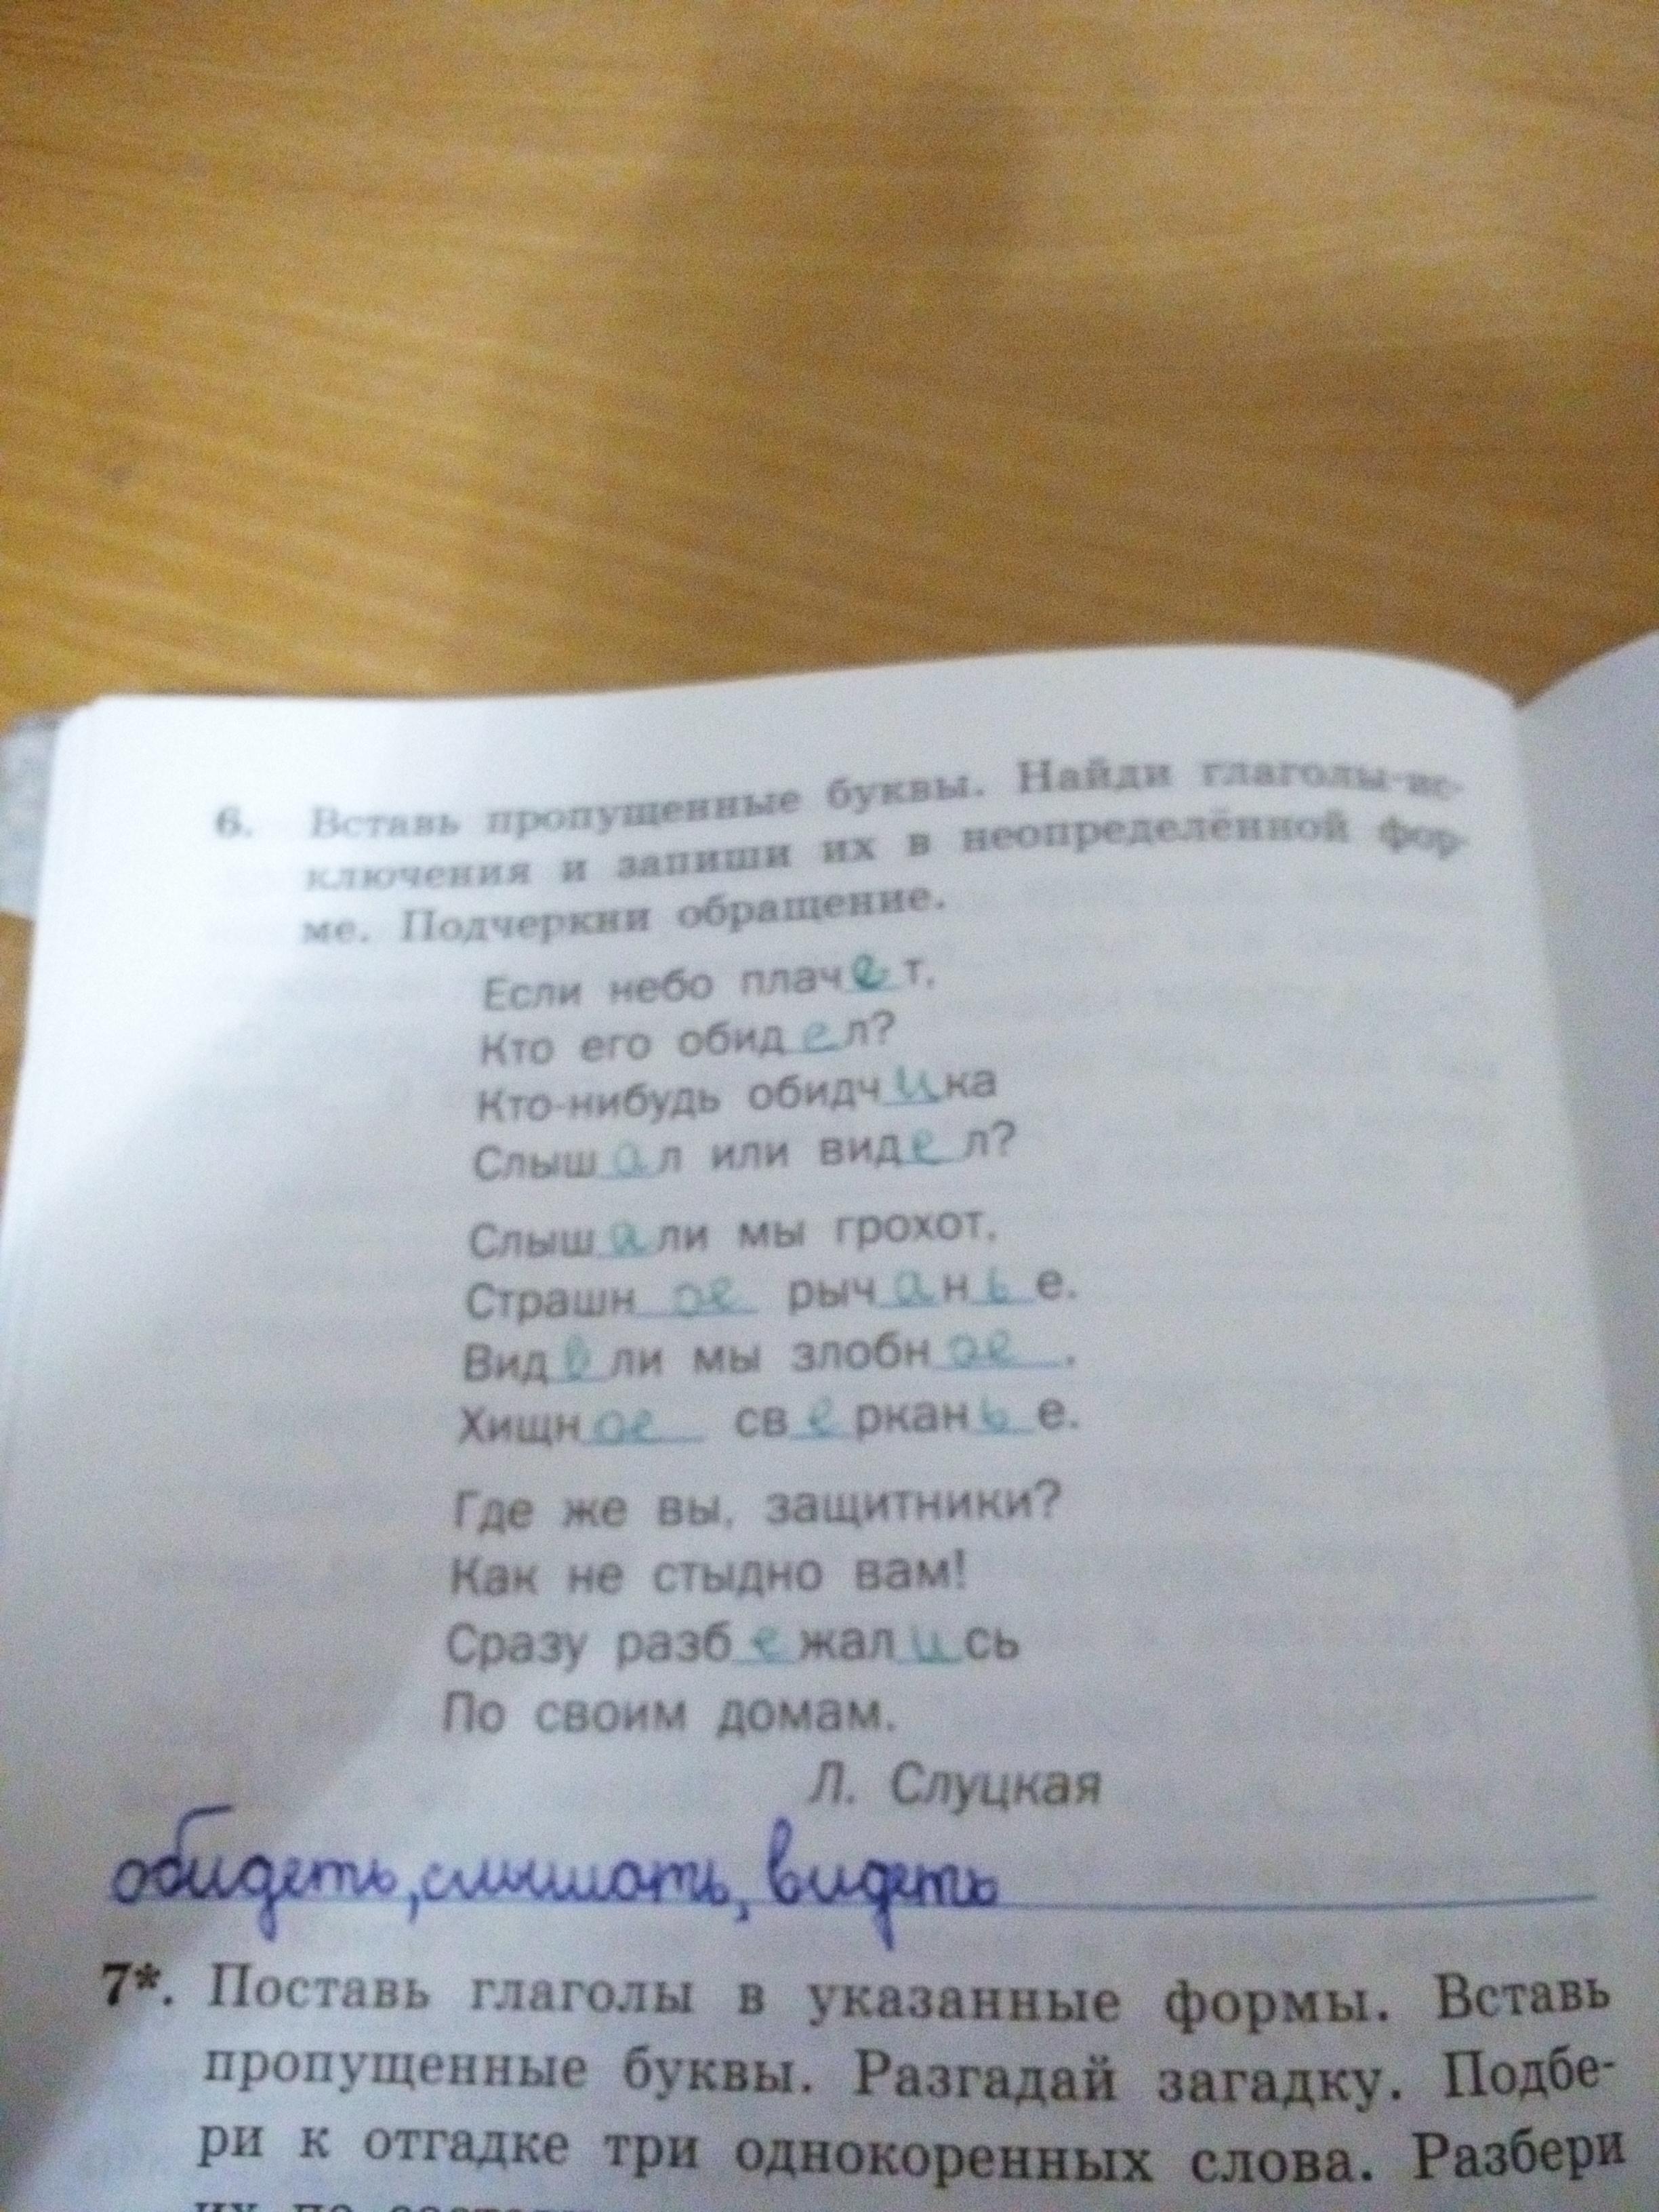 6. Вставь пропущенные буквы. Найди глаголы-ис-
ключения и запиши их в неопределённой фор-
ме. Подчеркни обращение.
Если небо плачет,
Кто его обидел?
Кто-нибудь обидчика
Слышал или видел?
Слышали мы грохот,
Страшное рычанье.
Видели мы злобное,
Хищное сверканье.
Где же вы, защитники?
Как не стыдно вам!
Сразу разбежались
По своим домам.
Л. Слуцкая
обидеть, слышать, видеть
7*. Поставь глаголы в указанные формы. Вставь
пропущенные буквы. Разгадай загадку. Подбе-
ри к отгадке три однокоренных слова. Разбери
их по